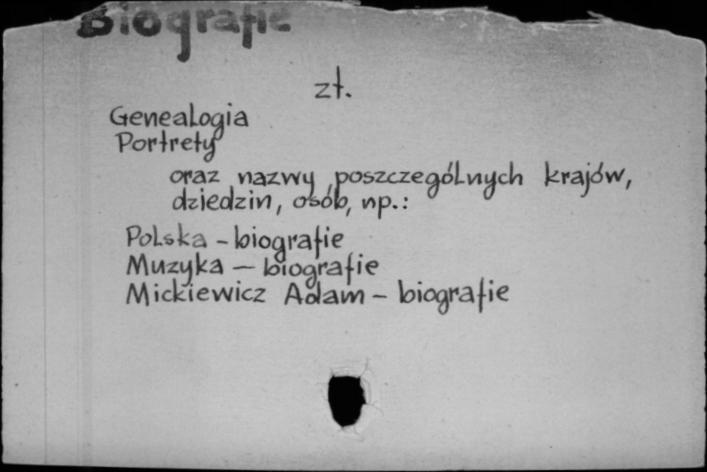 Biografie
zł.
Genealogia
Portrety
oraz nazwy poszczególnych krajów,
dziedzin, osób, np.:
Polska - biografie
Muzyka - biografie
Mickiewicz Adam - biografie